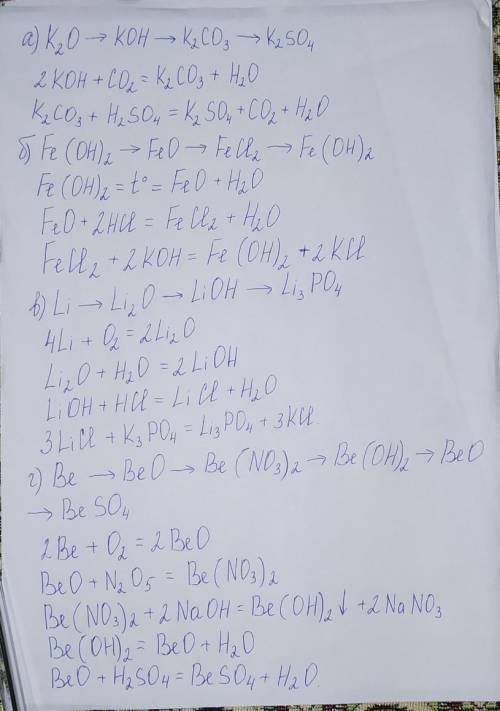 а) K₂O → KOH → K₂CO₃ → K₂SO₄
2KOH + CO₂ = K₂CO₃ + H₂O
K₂CO₃ + H₂SO₄ = K₂SO₄ + CO₂ + H₂O
б) Fe(OH)₂ → FeO → FeCl₂ → Fe(OH)₂
Fe(OH)₂ = t° = FeO + H₂O
FeO + 2HCl = FeCl₂ + H₂O
FeCl₂ + 2KOH = Fe(OH)₂ + 2KCl
в) Li → Li₂O → LiOH → Li₃PO₄
4Li + O₂ = 2Li₂O
Li₂O + H₂O = 2LiOH
LiOH + HCl = LiCl + H₂O
3LiCl + K₃PO₄ = Li₃PO₄ + 3KCl.
г) Be → BeO → Be(NO₃)₂ → Be(OH)₂ → BeO
→ BeSO₄
2Be + O₂ = 2BeO
BeO + N₂O₅ = Be(NO₃)₂
Be(NO₃)₂ + 2NaOH = Be(OH)₂↓ + 2NaNO₃
Be(OH)₂ = BeO + H₂O
BeO + H₂SO₄ = BeSO₄ + H₂O.